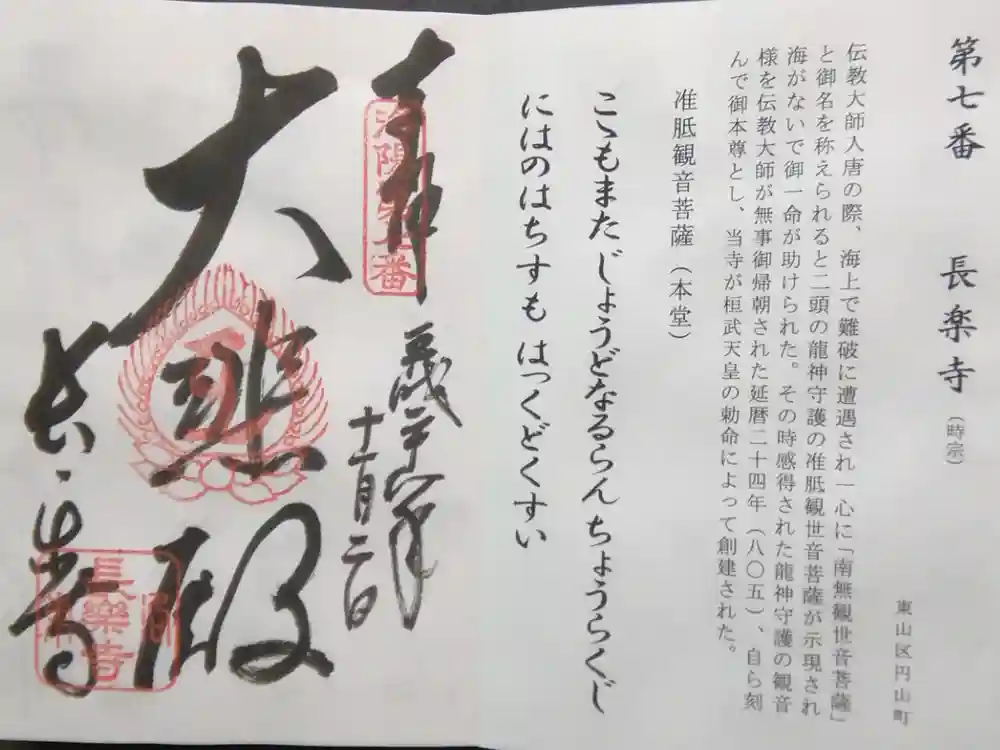 第七番 長楽寺（時宗）
東山区円山町
伝教大師入唐の際、海上で難破に遭遇され一心に「南無観世音菩薩」
と御名を称えられると二頭の龍神守護の准胝観世音菩薩が示現され
海がないで御一命が助けられた。その時感得された龍神守護の観音
様を伝教大師が無事御帰朝された延暦二十四年（八〇五）、自ら刻
んで御本尊とし、当寺が桓武天皇の勅命によって創建された。
准胝観音菩薩（本堂）
こゝもまた じょうどなるらん ちょうらくじ
にはのはちすも はっくどくすい
奉拝
洛陽第七番
十二月二日
大悲殿
長楽寺
長樂寺